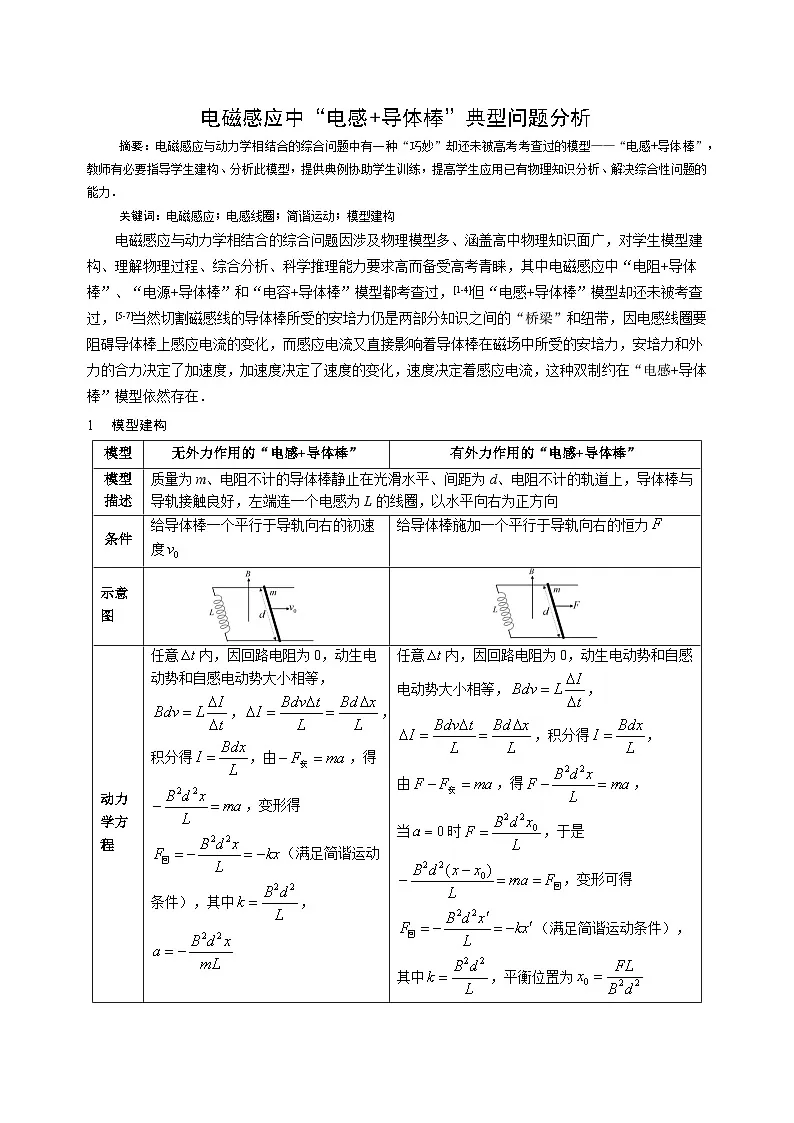 电磁感应中“电感+导体棒”典型问题分析
摘要：电磁感应与动力学相结合的综合问题中有一种“巧妙”却还未被高考考查过的模型——“电感+导体棒”，
教师有必要指导学生建构、分析此模型，提供典例协助学生训练，提高学生应用已有物理知识分析、解决综合性问题的
能力．
关键词：电磁感应；电感线圈；简谐运动；模型建构
电磁感应与动力学相结合的综合问题因涉及物理模型多、涵盖高中物理知识面广，对学生模型建
构、理解物理过程、综合分析、科学推理能力要求高而备受高考青睐，其中电磁感应中“电阻+导体
棒”、“电源+导体棒”和“电容+导体棒”模型都考查过，[1-4]但“电感+导体棒”模型却还未被考查
过，[5-7]当然切割磁感线的导体棒所受的安培力仍是两部分知识之间的“桥梁”和纽带，因电感线圈要
阻碍导体棒上感应电流的变化，而感应电流又直接影响着导体棒在磁场中所受的安培力，安培力和外
力的合力决定了加速度，加速度决定了速度的变化，速度决定着感应电流，这种双制约在“电感+导体
棒”模型依然存在．
1 模型建构
模型 无外力作用的“电感+导体棒” 有外力作用的“电感+导体棒”
模型描述 质量为 m、电阻不计的导体棒静止在光滑水平、间距为 d、电阻不计的轨道上，导体棒与
导轨接触良好，左端连一个电感为 L 的线圈，以水平向右为正方向
条件
给导体棒一个平行于导轨向右的初速
度 v₀
给导体棒施加一个平行于导轨向右的恒力 F
示意图
B
m
L
d
v₀
B
m
L
d
F
动力学方程
任意 Δt 内，因回路电阻为 0，动生电
动势和自感电动势大小相等，
Bdv = L ΔI/Δt ，ΔI = BdvΔt/L = BdΔx/L ，
积分得 I = Bdx/L ，由 −F安 = ma ，得
−B²d²x/L = ma ，变形得
F回 = −B²d²x/L = −kx（满足简谐运动
条件），其中 k = B²d²/L ，
a = −B²d²x/mL
任意 Δt 内，因回路电阻为 0，动生电动势和自感
电动势大小相等，Bdv = L ΔI/Δt ，
ΔI = BdvΔt/L = BdΔx/L ，积分得 I = Bdx/L ，
由 F − F安 = ma ，得 F − B²d²x/L = ma ，
当 a = 0 时 F = B²d²x₀/L ，于是
−B²d²(x − x₀)/L = ma = F回 ，变形可得
F回 = −B²d²x′/L = −kx′（满足简谐运动条件），
其中 k = B²d²/L ，平衡位置为 x₀ = FL/B²d²